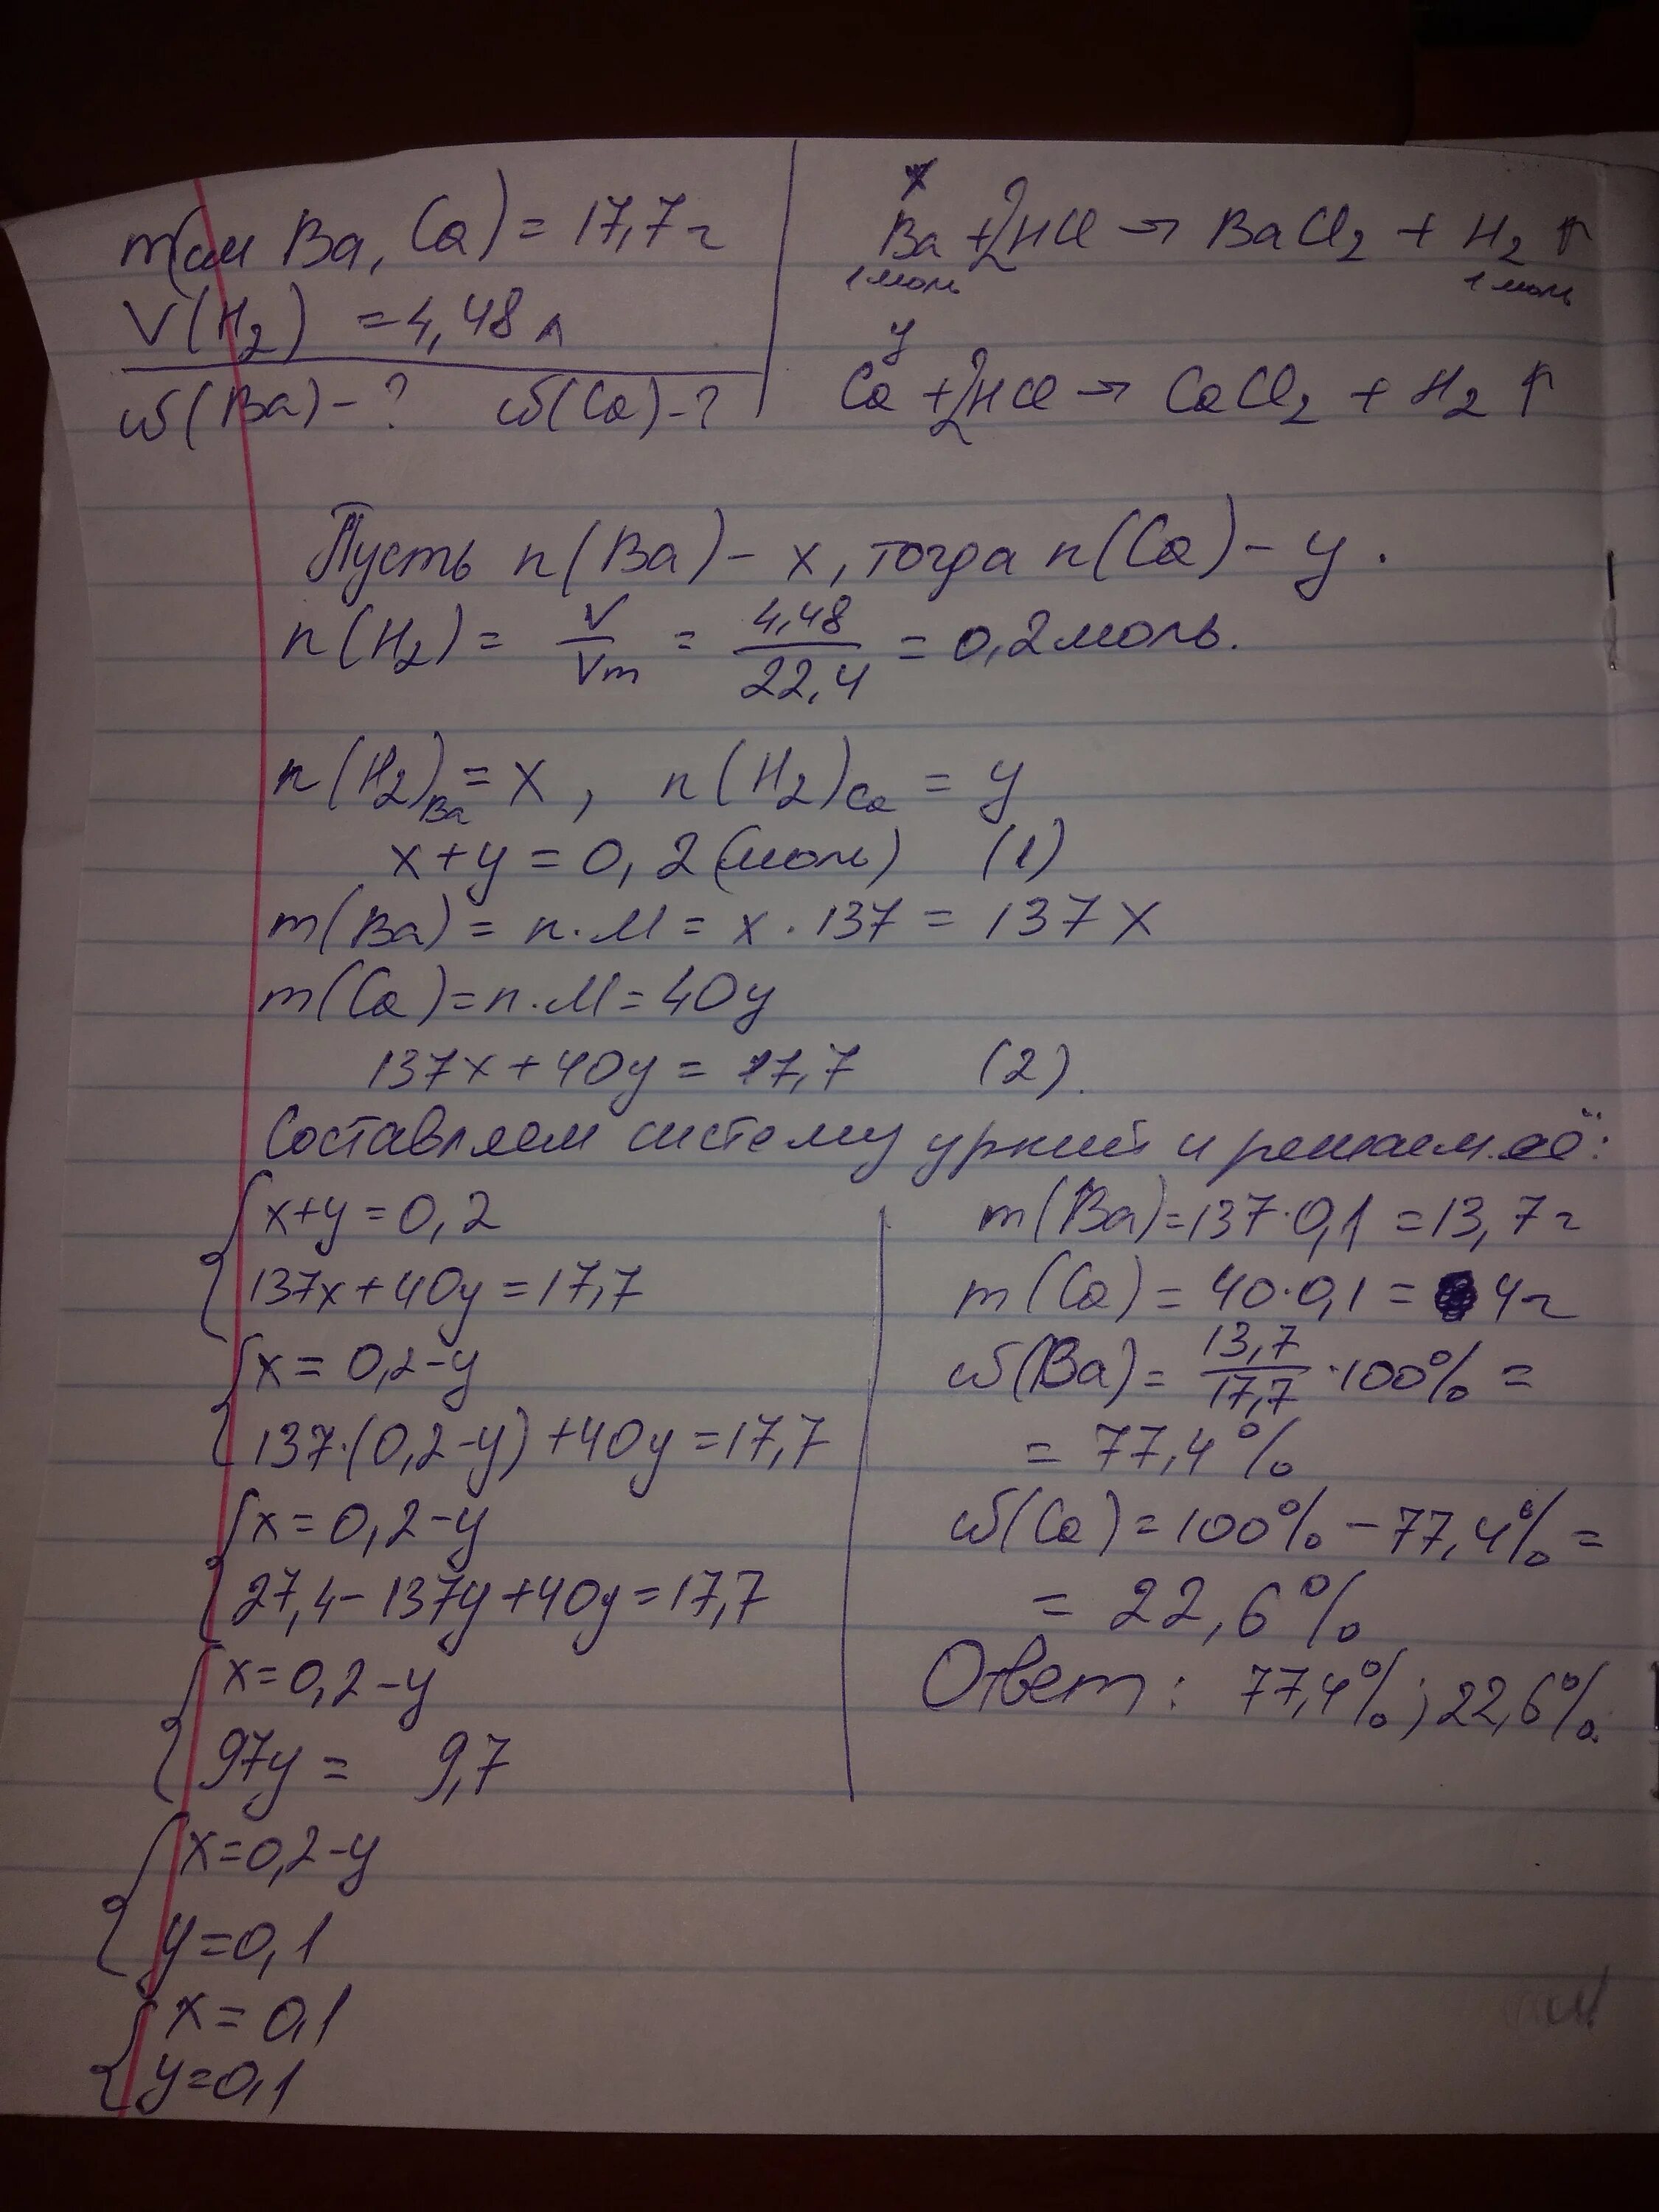 m(см Ba, Ca) = 17,7г
V(H2) = 4,48л
ω(Ba) - ? ω(Ca) - ?
x
Ba + 2HCl → BaCl2 + H2 ↑
1 моль 1 моль
y
Ca + 2HCl → CaCl2 + H2 ↑
Пусть n(Ba) - x, тогда n(Ca) - y.
n(H2) = V/Vm = 4,48/22,4 = 0,2 моль.
n(H2)Ba = x, n(H2)Ca = y
x+y = 0,2 (моль) (1)
m(Ba) = n·M = x · 137 = 137x
m(Ca) = n·M = 40y
137x + 40y = 17,7 (2).
Составляем систему ур-ний и решаем её:
{x+y = 0,2
137x + 40y = 17,7
{x = 0,2-y
137·(0,2-y) + 40y = 17,7
{x = 0,2-y
27,4 - 137y + 40y = 17,7
{x = 0,2-y
97y = 9,7
{x = 0,2-y
y = 0,1
{x = 0,1
y = 0,1
m(Ba) = 137·0,1 = 13,7г
m(Ca) = 40·0,1 = 4г
ω(Ba) = 13,7/17,7 · 100% =
= 77,4%
ω(Ca) = 100% - 77,4% =
= 22,6%
Ответ: 77,4%; 22,6%.